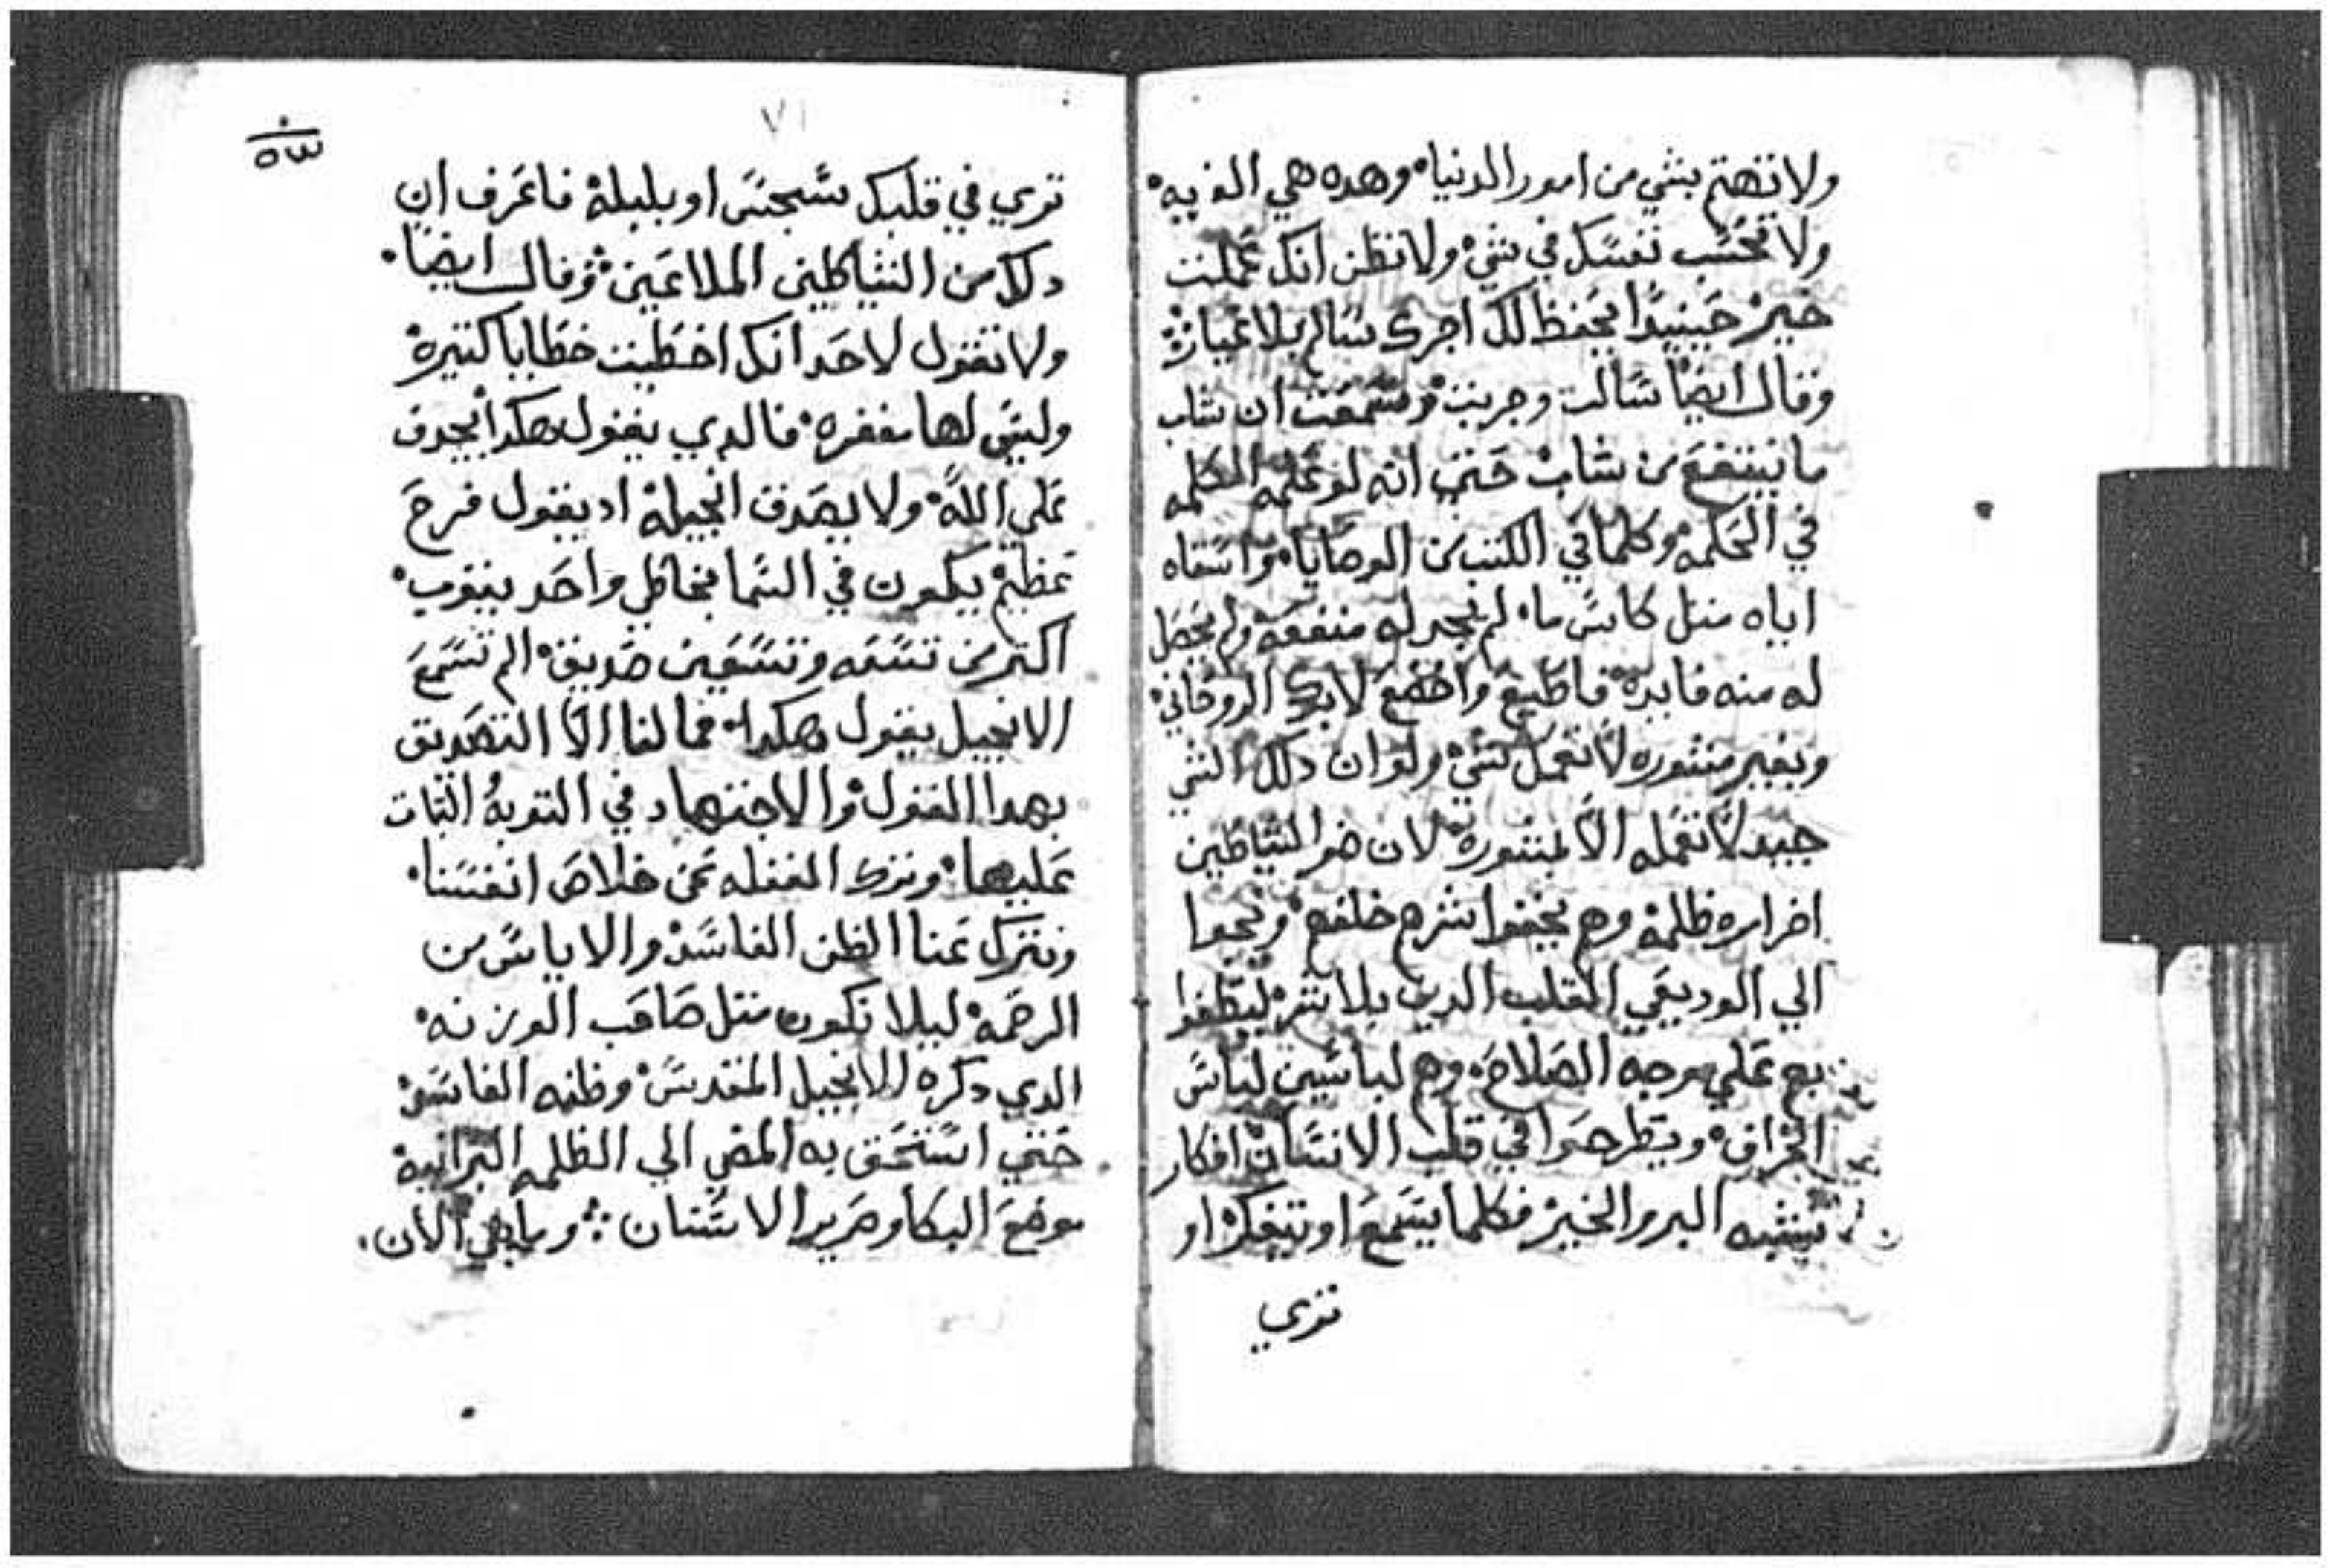 ولا تهتم بشي من امور الدنيا وهده هي الغربه
ولا تحسب نفسك في شي ولا تظن انك عملت
خير حينيدا يحفظ لك اجرك سالم بلا عيارة
وقال ايضا سالت وجربت وسمعت ان شاب
ما ينتفع من شاب حتي انه لو علمه الحكمه
في الحكمه وكلما في الكتب من الوصايا واسقاه
اياه متل كاس ما لم يجد له منفعه ولم يحصل
له منه فايده فاطيع واخضع لابوك الروحاني
وبغير مشوره لا تعمل شي ولو ان دلك الشي
جيد لا تعمله الا بمشورة لان ضو الشياطين
اخرا ره ظلمة وهم يخفوا شرهم خلفهم ويجوا
الي الوديعي القلب الدين بلا شر ليظفوا
بهم علي وجه الصلاح وهم لباسين لباس
الخراف ويطرحوا في قلب الانسان افكار
تشبه البر والخير فكلما يسمع او تتفكر او
تري
٧١
ترى في قلبك سجس او بلبلة فاعرف ان
دلك من الشياطين الملاعين وقال ايضا
ولا تقول لاحد انك اخطيت خطايا كتيرة
وليس لها مغفره فالدي يقول هكدا يجدف
علي الله ولا يصدق انجيله اد يقول فرح
عظيم يكون في السما بخاطي واحد يتوب
اكتر من تسعه وتسعين صديق الم تسمع
الانجيل يقول هكدا فما لنا الا التصديق
بهدا القول والاجتهاد في التوبة الثبات
عليها ونترك الغفله عن خلاص انفسنا
ونترك عنا الظن الفاسد والاياس من
الرحمه ليلا نكون متل صاحب الوزنه
الدي دكره الانجيل المقدس وظنه الفاسد
حتي استحق به المضي الي الظلمه البرانيه
موضع البكا وصرير الاسنان وما هي الان